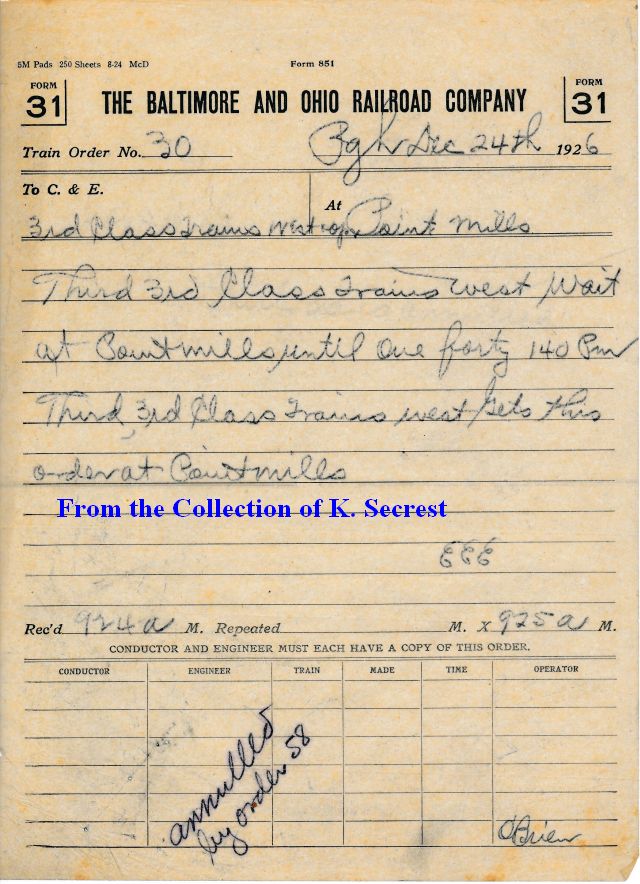 5M Pads 250 Sheets 8-24 McD
Form 851
FORM 31
THE BALTIMORE AND OHIO RAILROAD COMPANY
FORM 31
Train Order No. 30
Pgh Dec 24th 1926
To C. & E.
3rd Class Trains West
At Point Mills
Third 3rd Class Trains west Wait
at Pointmills until One forty 140 Pm
Third 3rd Class Trains west gets this
order at Pointmills
From the Collection of K. Secrest
EEE
Rec'd 924a M. Repeated M. X 925a M.
CONDUCTOR AND ENGINEER MUST EACH HAVE A COPY OF THIS ORDER.
CONDUCTOR ENGINEER TRAIN MADE TIME OPERATOR
annulled
by order 58
O'Brien